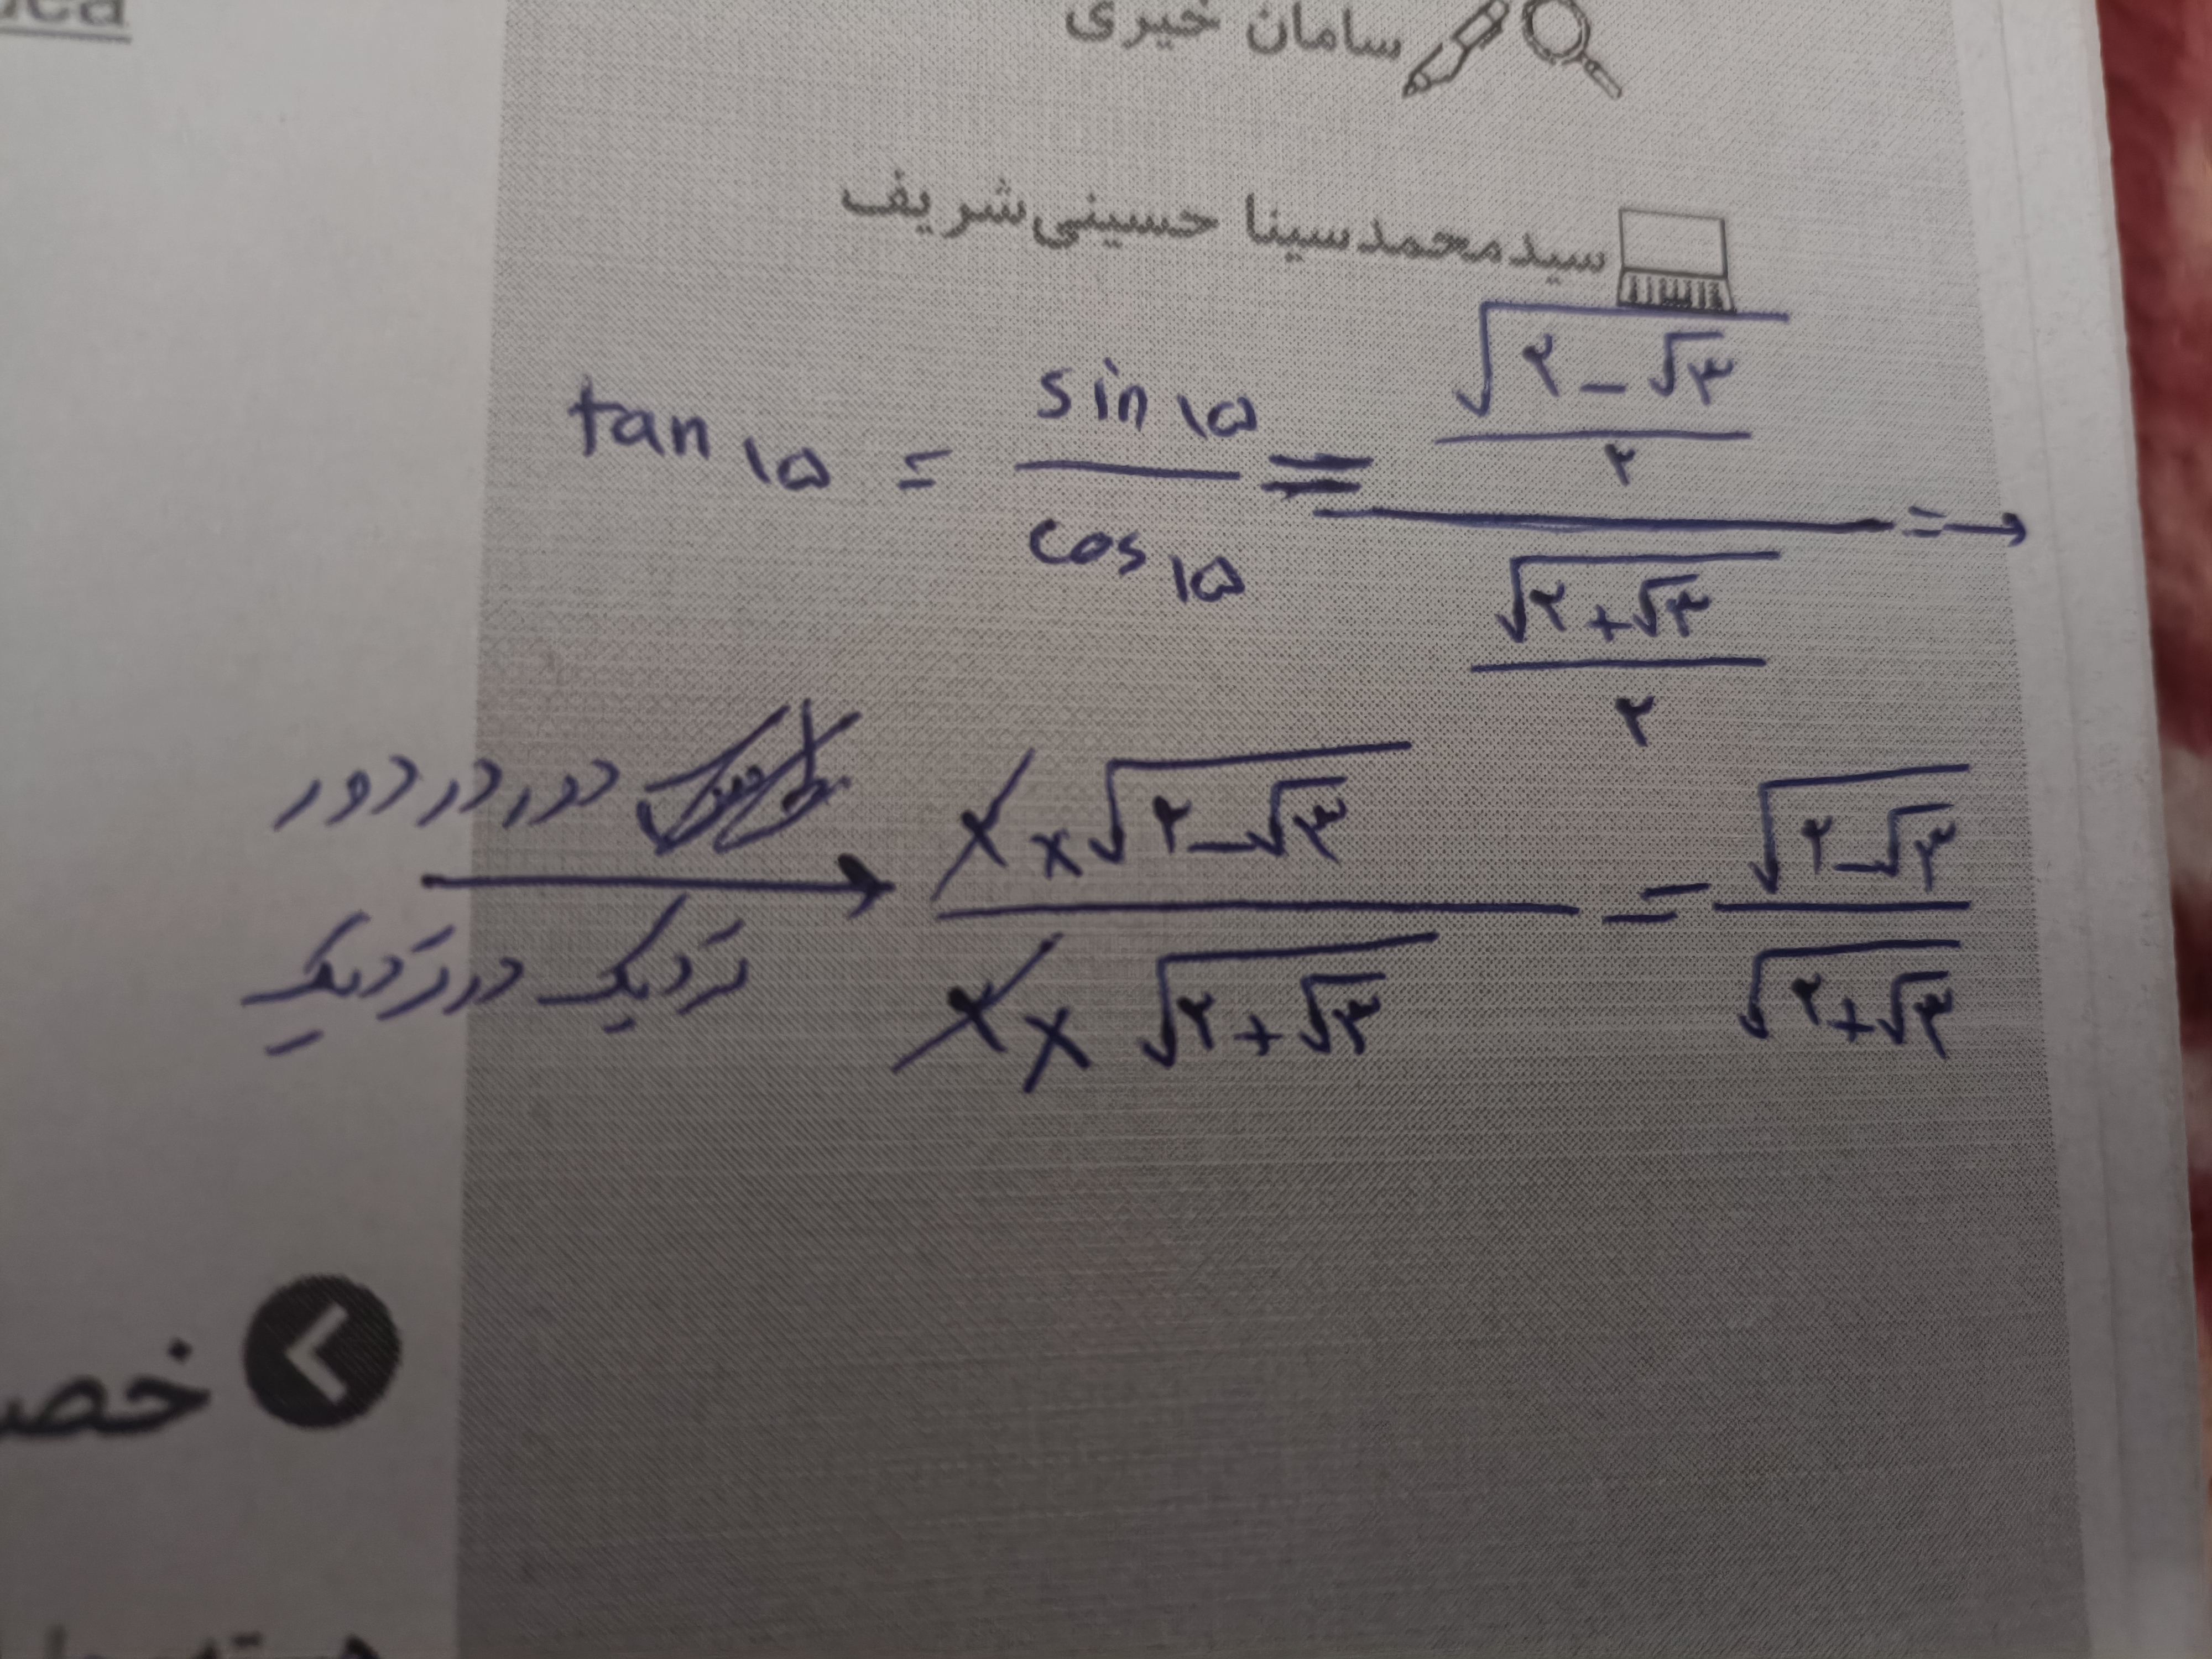 سامان خیری
سیدمحمدسینا حسینی‌شریف
tan ۱۵ = sin ۱۵ / cos ۱۵ = (√(۲ - √۳) / ۲) / (√(۲ + √۳) / ۲) = →
دور در دور
نزدیک در نزدیک
→ (۲ × √(۲ - √۳)) / (۲ × √(۲ + √۳)) = √(۲ - √۳) / √(۲ + √۳)